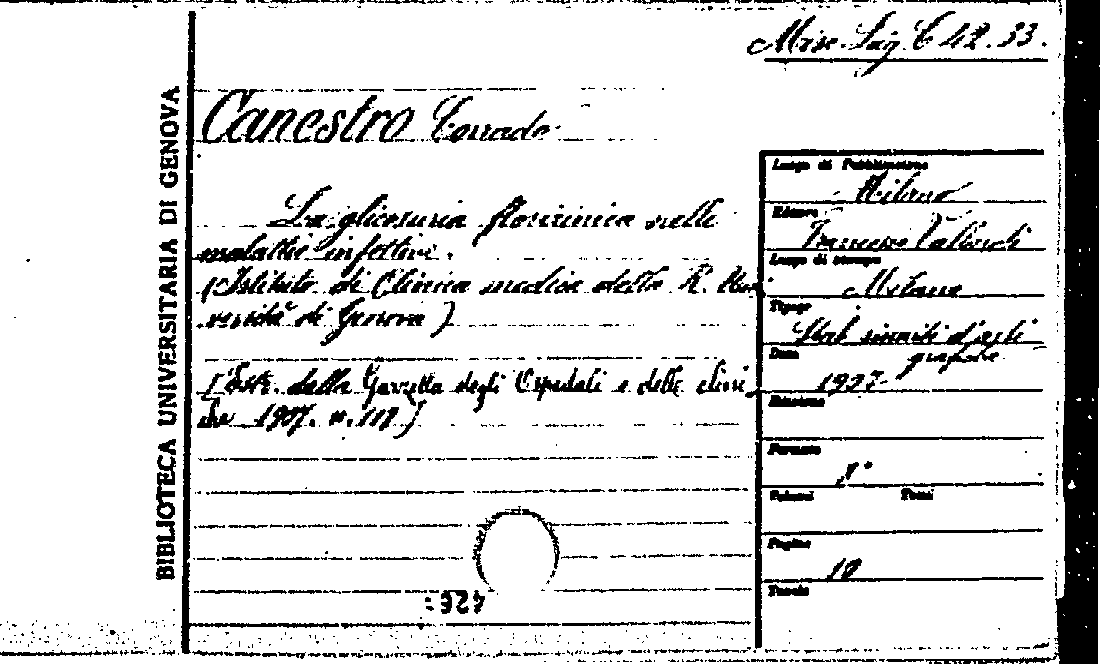 Misc. Lig. C 42. 33.
BIBLIOTECA UNIVERSITARIA DI GENOVA
Canestro Corrado
La glicosuria florizinica nelle
malattie infettive.
(Istituto di Clinica medica della R. Uni
versità di Genova)
[Estr. dalla Gazzetta degli Ospedali e delle clini
che 1907. n. 117]
Luogo di Pubblicazione
Milano
Editore
Francesco Vallardi
Luogo di stampa
Milano
Tipogr
Stab. riuniti d'arti
grafiche
Data
1907
Edizione
Formato
8°
Volumi Tomi
Pagine
10
Tavole